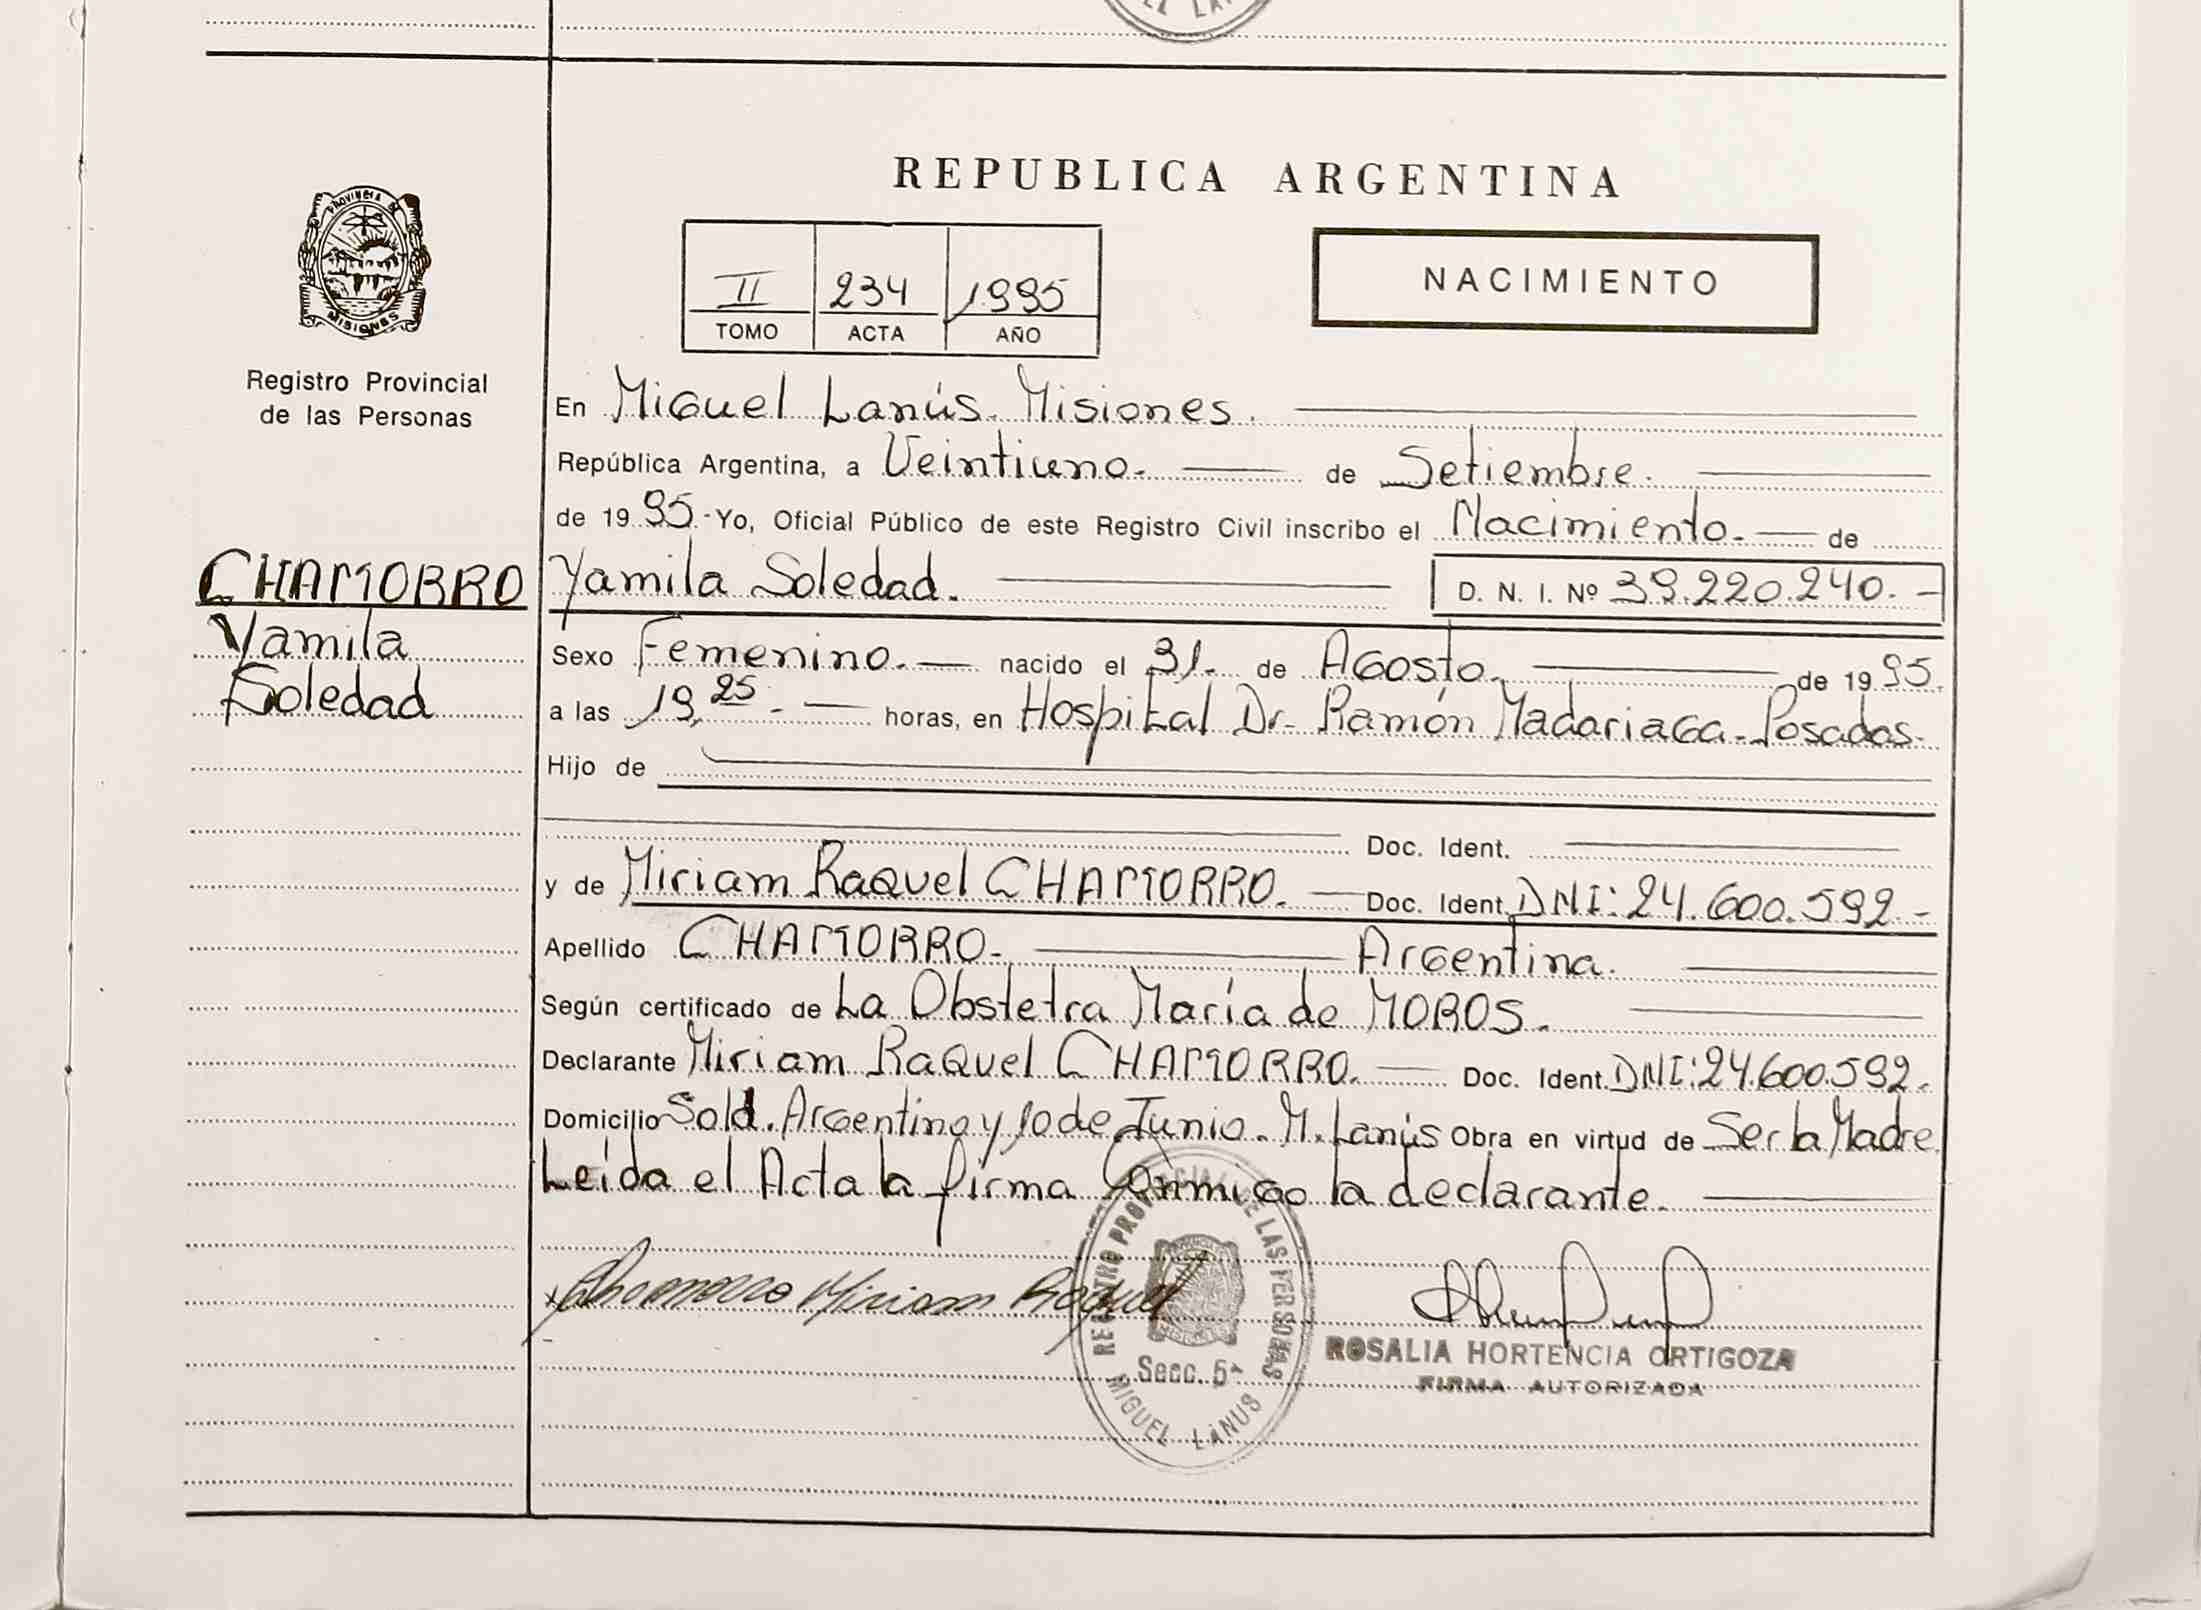 EL LAN
REPUBLICA ARGENTINA
PROVINCIA DE
MISIONES
Registro Provincial
de las Personas
II 234 1995
TOMO ACTA AÑO
NACIMIENTO
En Miguel Lanús. Misiones.
República Argentina, a Veintiuno. de Setiembre.
de 1995.-Yo, Oficial Público de este Registro Civil inscribo el Nacimiento. de
CHAMORRO
Yamila
Soledad
Yamila Soledad. D. N. I. Nº 39.220.240.-
Sexo Femenino. nacido el 31. de Agosto. de 1995.
a las 19,25.- horas, en Hospital Dr. Ramón Madariaga-Posadas-
Hijo de
Doc. Ident.
y de Miriam Raquel CHAMORRO. Doc. Ident. DNI: 24.600.592.-
Apellido CHAMORRO. Argentina.
Según certificado de La Obstetra María de MOROS.
Declarante Miriam Raquel CHAMORRO. Doc. Ident. DNI: 24.600.592.
Domicilio Sold. Argentino y 10 de Junio. M. Lanús Obra en virtud de Ser la Madre.
Leída el Acta la firma Conmigo la declarante.
Chamorro Miriam Raquel
REGISTRO PROVINCIAL DE LAS PERSONAS
Secc. 5ª
MIGUEL LANUS
ROSALIA HORTENCIA ORTIGOZA
FIRMA AUTORIZADA